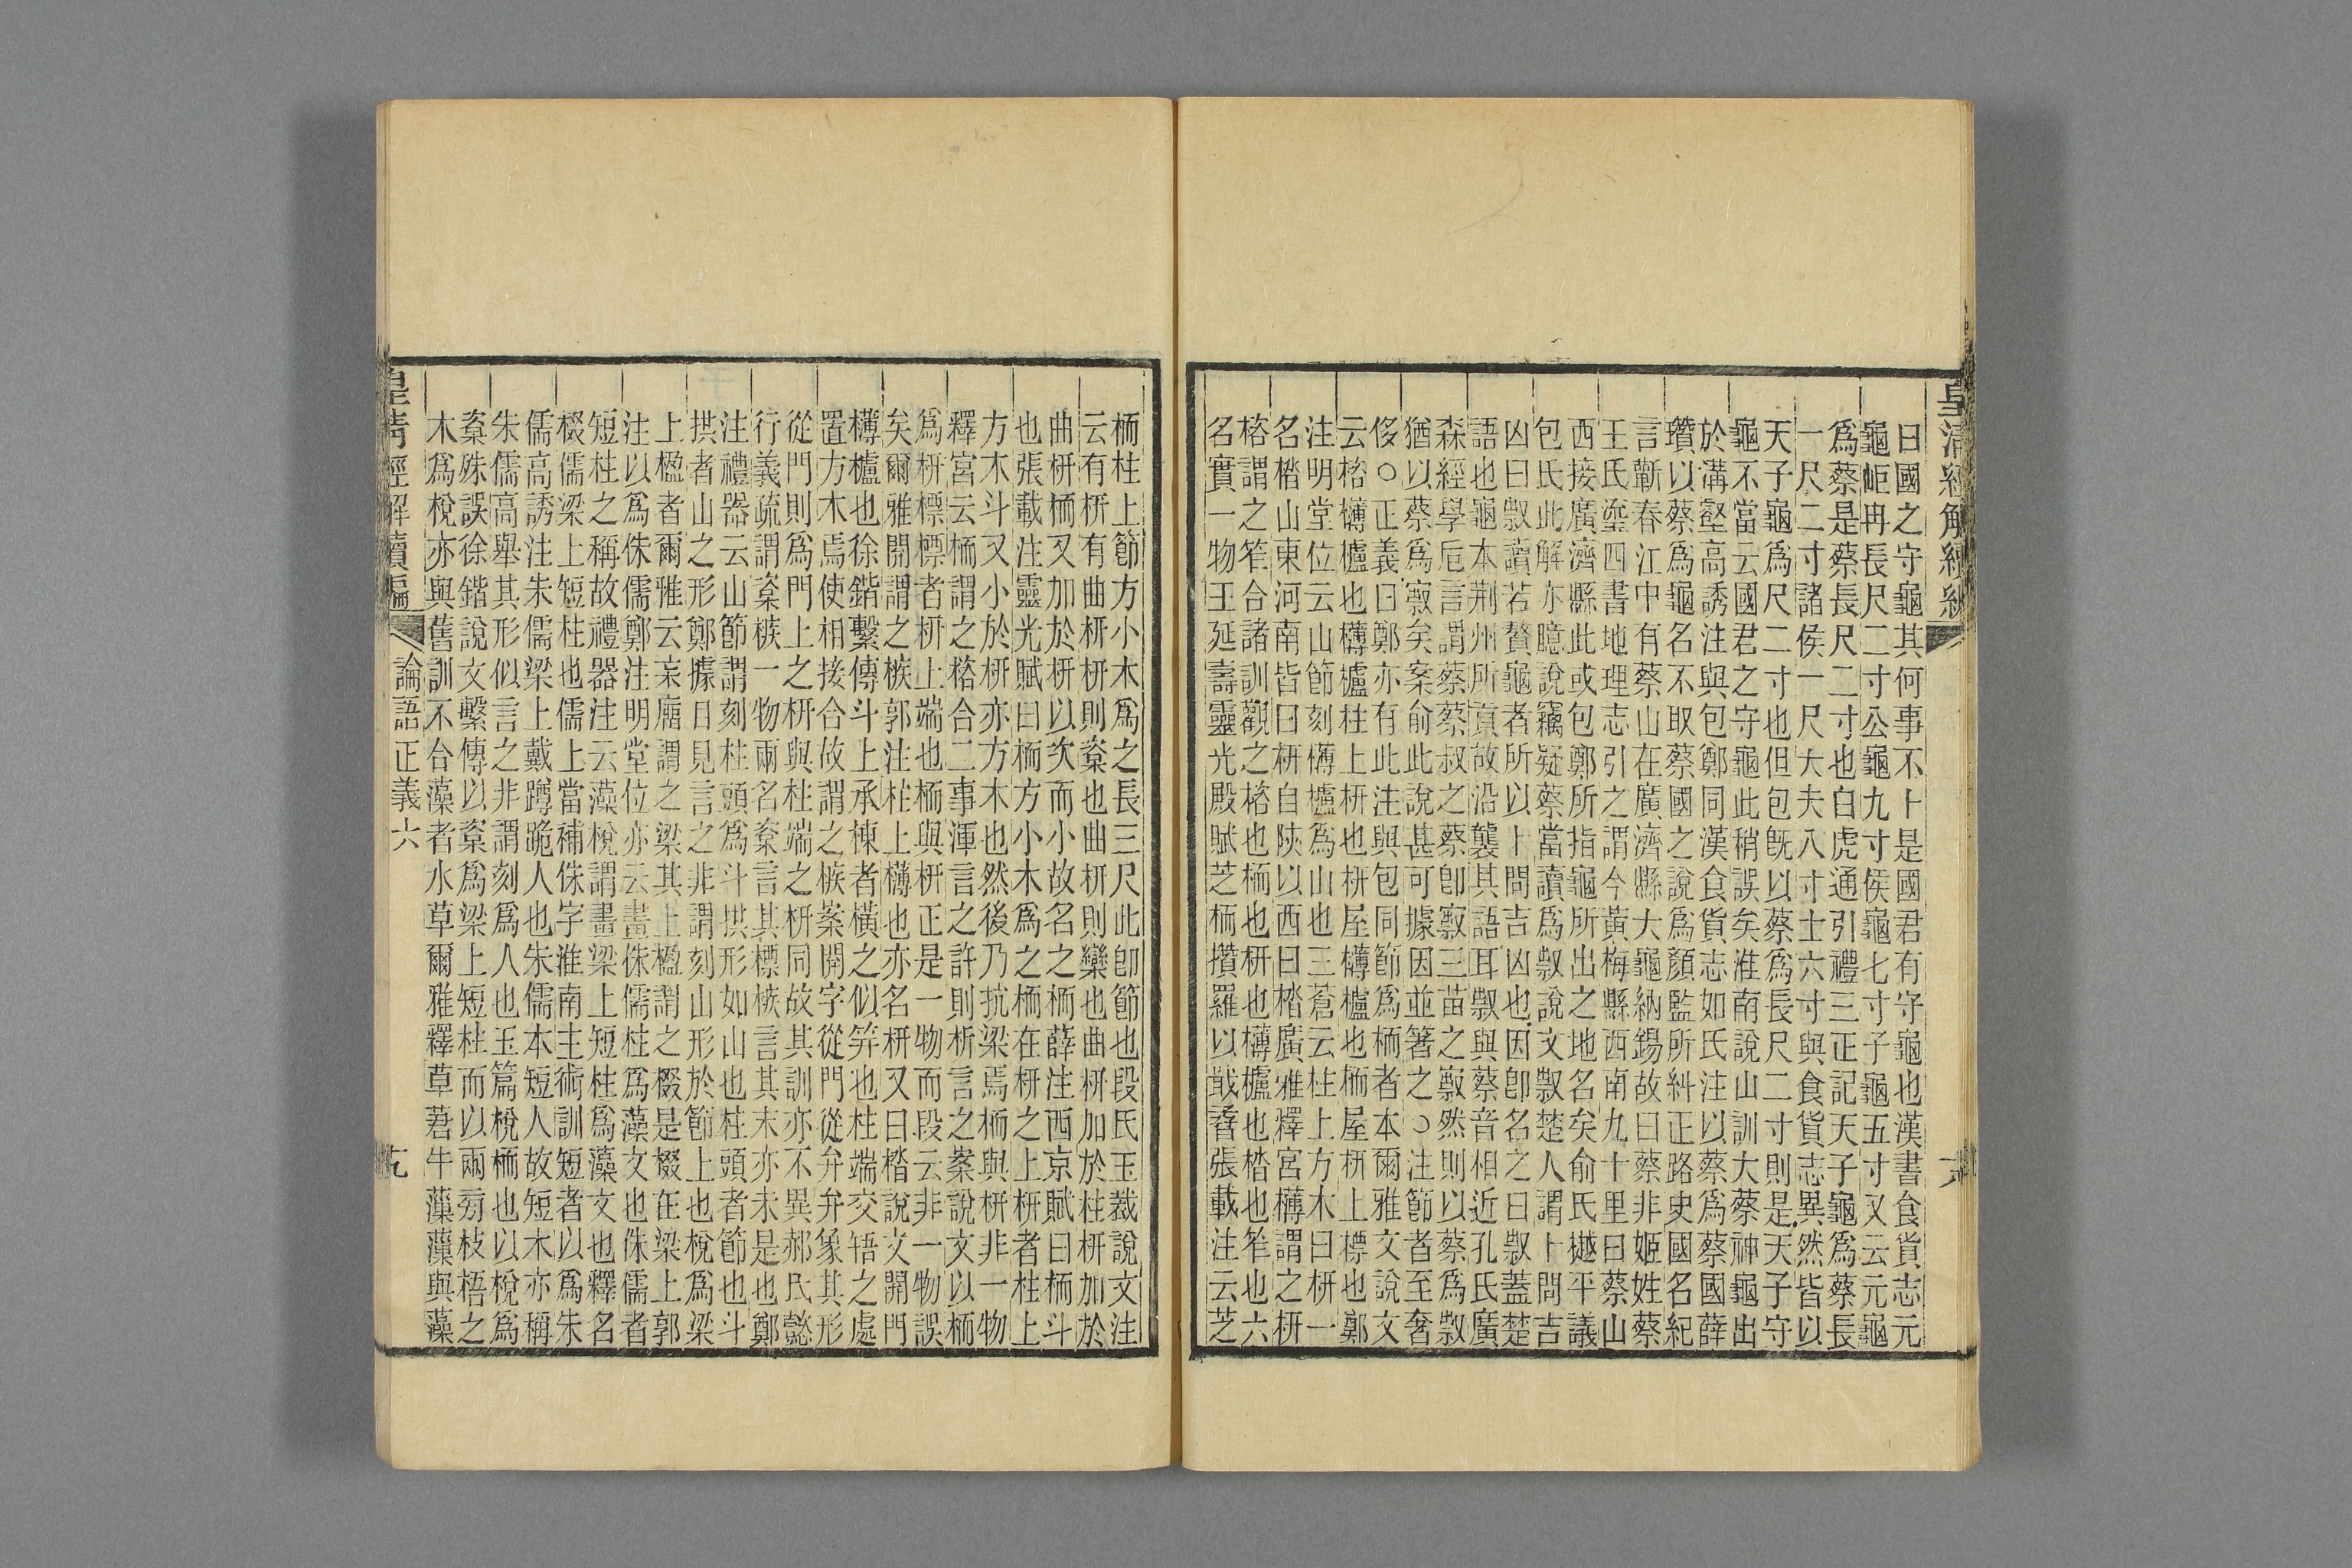 皇清經解續編
大
曰國之守龜其何事不卜是國君有守龜也漢書食貨志元
龜岠冉長尺二寸公龜九寸侯龜七寸子龜五寸又云元龜
爲蔡是蔡長尺二寸也白虎通引禮三正記天子龜爲蔡長
一尺二寸諸侯一尺大夫八寸士六寸與食貨志異然皆以
天子龜爲尺二寸也但包旣以蔡爲長尺二寸則是天子守
龜不當云國君之守龜此稍誤矣淮南說山訓大蔡神龜出
於溝壑高誘注與包鄭同漢食貨志如氏注以蔡爲蔡國薛
瓚以蔡爲龜名不取蔡國之說爲顏監所糾正路史國名紀
言蘄春江中有蔡山在廣濟縣大龜納錫故曰蔡非姬姓蔡
王氏瑬四書地理志引之謂今黃梅縣西南九十里曰蔡山
西接廣濟縣此或包鄭所指龜所出之地名矣俞氏樾平議
包氏此解亦臆說竊疑蔡當讀爲㱁說文㱁楚人謂卜問吉
凶曰㱁讀若贅龜者所以卜問吉凶也因卽名之曰㱁蓋楚
語也龜本荆州所貢故沿襲其語耳㱁與蔡音相近孔氏廣
森經學卮言謂蔡蔡叔之蔡卽䝿三苗之䝿然則以蔡爲㱁
猶以蔡爲䝿矣案俞此說甚可據因並箸之○注節者至奢
侈○正義曰鄭亦有此注與包同節爲栭者本爾雅文說文
云㭘欂櫨也欂櫨柱上枅也枅屋欂櫨也栭屋枅上標也鄭
注明堂位云山節刻欂櫨爲山也三蒼云柱上方木曰枅一
名楷山東河南皆曰枅自陝以西曰楷廣雅釋宮欂謂之枅
㭘謂之笮合諸訓觀之㭘也栭也枅也欂櫨也楷也笮也六
名實一物王延壽靈光殿賦芝栭攢羅以戢孴張載注云芝
栭柱上節方小木爲之長三尺此卽節也段氏玉裁說文注
云有枅有曲枅枅則楶也曲枅則欒也曲枅加於柱枅加於
曲枅栭又加於枅以次而小故名之栭薛注西京賦曰栭斗
也張載注靈光賦曰栭方小木爲之栭在枅之上枅者柱上
方木斗又小於枅亦方木也然後乃抗梁焉栭與枅非一物
釋宮云栭謂之㭘合二事渾言之許則析言之案說文以栭
爲枅標標者枅上端也栭與枅正是一物而段云非一物誤
矣爾雅開謂之槉郭注柱上欂也亦名枅又曰楷說文開門
欂櫨也徐鍇繫傳斗上承棟者橫之似笄也柱端交㸦之處
置方木焉使相接合故謂之槉案開字從門從弁弁象其形
從門則爲門上之枅與柱端之枅同故其訓亦不異郝氏懿
行義疏謂楶槉一物兩名楶言其標槉言其末亦未是也鄭
注禮器云山節謂刻柱頭爲斗拱形如山也柱頭者節也斗
拱者山之形鄭據目見言之非謂刻山形於節上也梲爲梁
上楹者爾雅云杗廇謂之梁其上楹謂之棳是棳在梁上郭
注以爲侏儒鄭注明堂位亦云畫侏儒柱爲藻文也侏儒者
短柱之稱故禮器注云藻梲謂畫梁上短柱爲藻文也釋名
棳儒梁上短柱也儒上當補侏字淮南主術訓短者以爲朱
儒高誘注朱儒梁上戴蹲跪人也朱儒本短人故短木亦稱
朱儒高舉其形似言之非謂刻爲人也玉篇梲栭也以梲爲
楶殊誤徐鍇說文繫傳以楶爲梁上短柱而以兩旁枝梧之
木爲梲亦與舊訓不合藻者水草爾雅釋草莙牛薻薻與藻
皇清經解續編
論語正義六